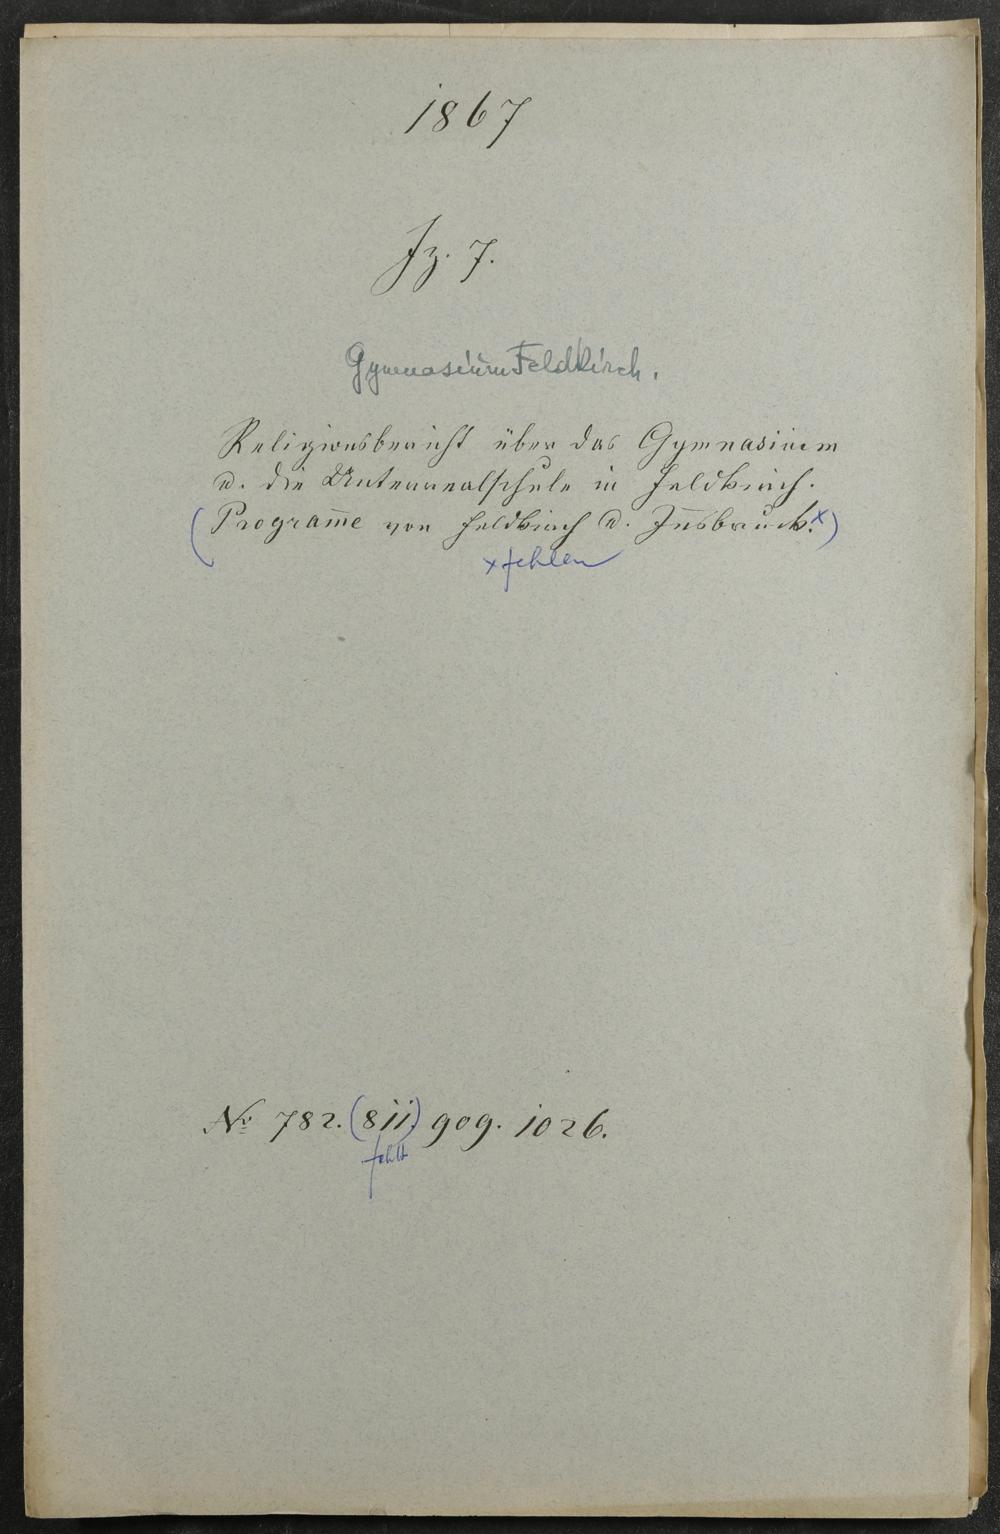 1867
Fz. 7.
Gymnasium Feldkirch.
Religionsbericht über das Gymnasium
u. die Unterrealschule in Feldkirch.
(Programme von Feldkirch u. Innsbruck.x)
x fehlen
No 782. (811.) 909. 1026.
fehlt